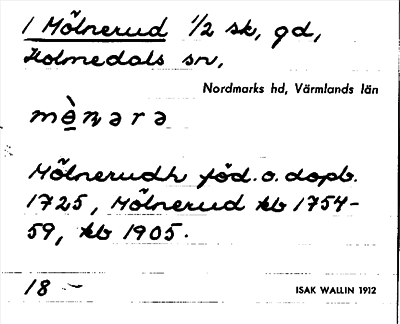 1 Mölnerud 1/2 sk, gd,
Holmedals sn,
Nordmarks hd, Värmlands län
mènəra
Mölnerudh föd. o. dopb.
1725, Mölnerud kb 1754-
59, kb 1905.
18 ~
ISAK WALLIN 1912